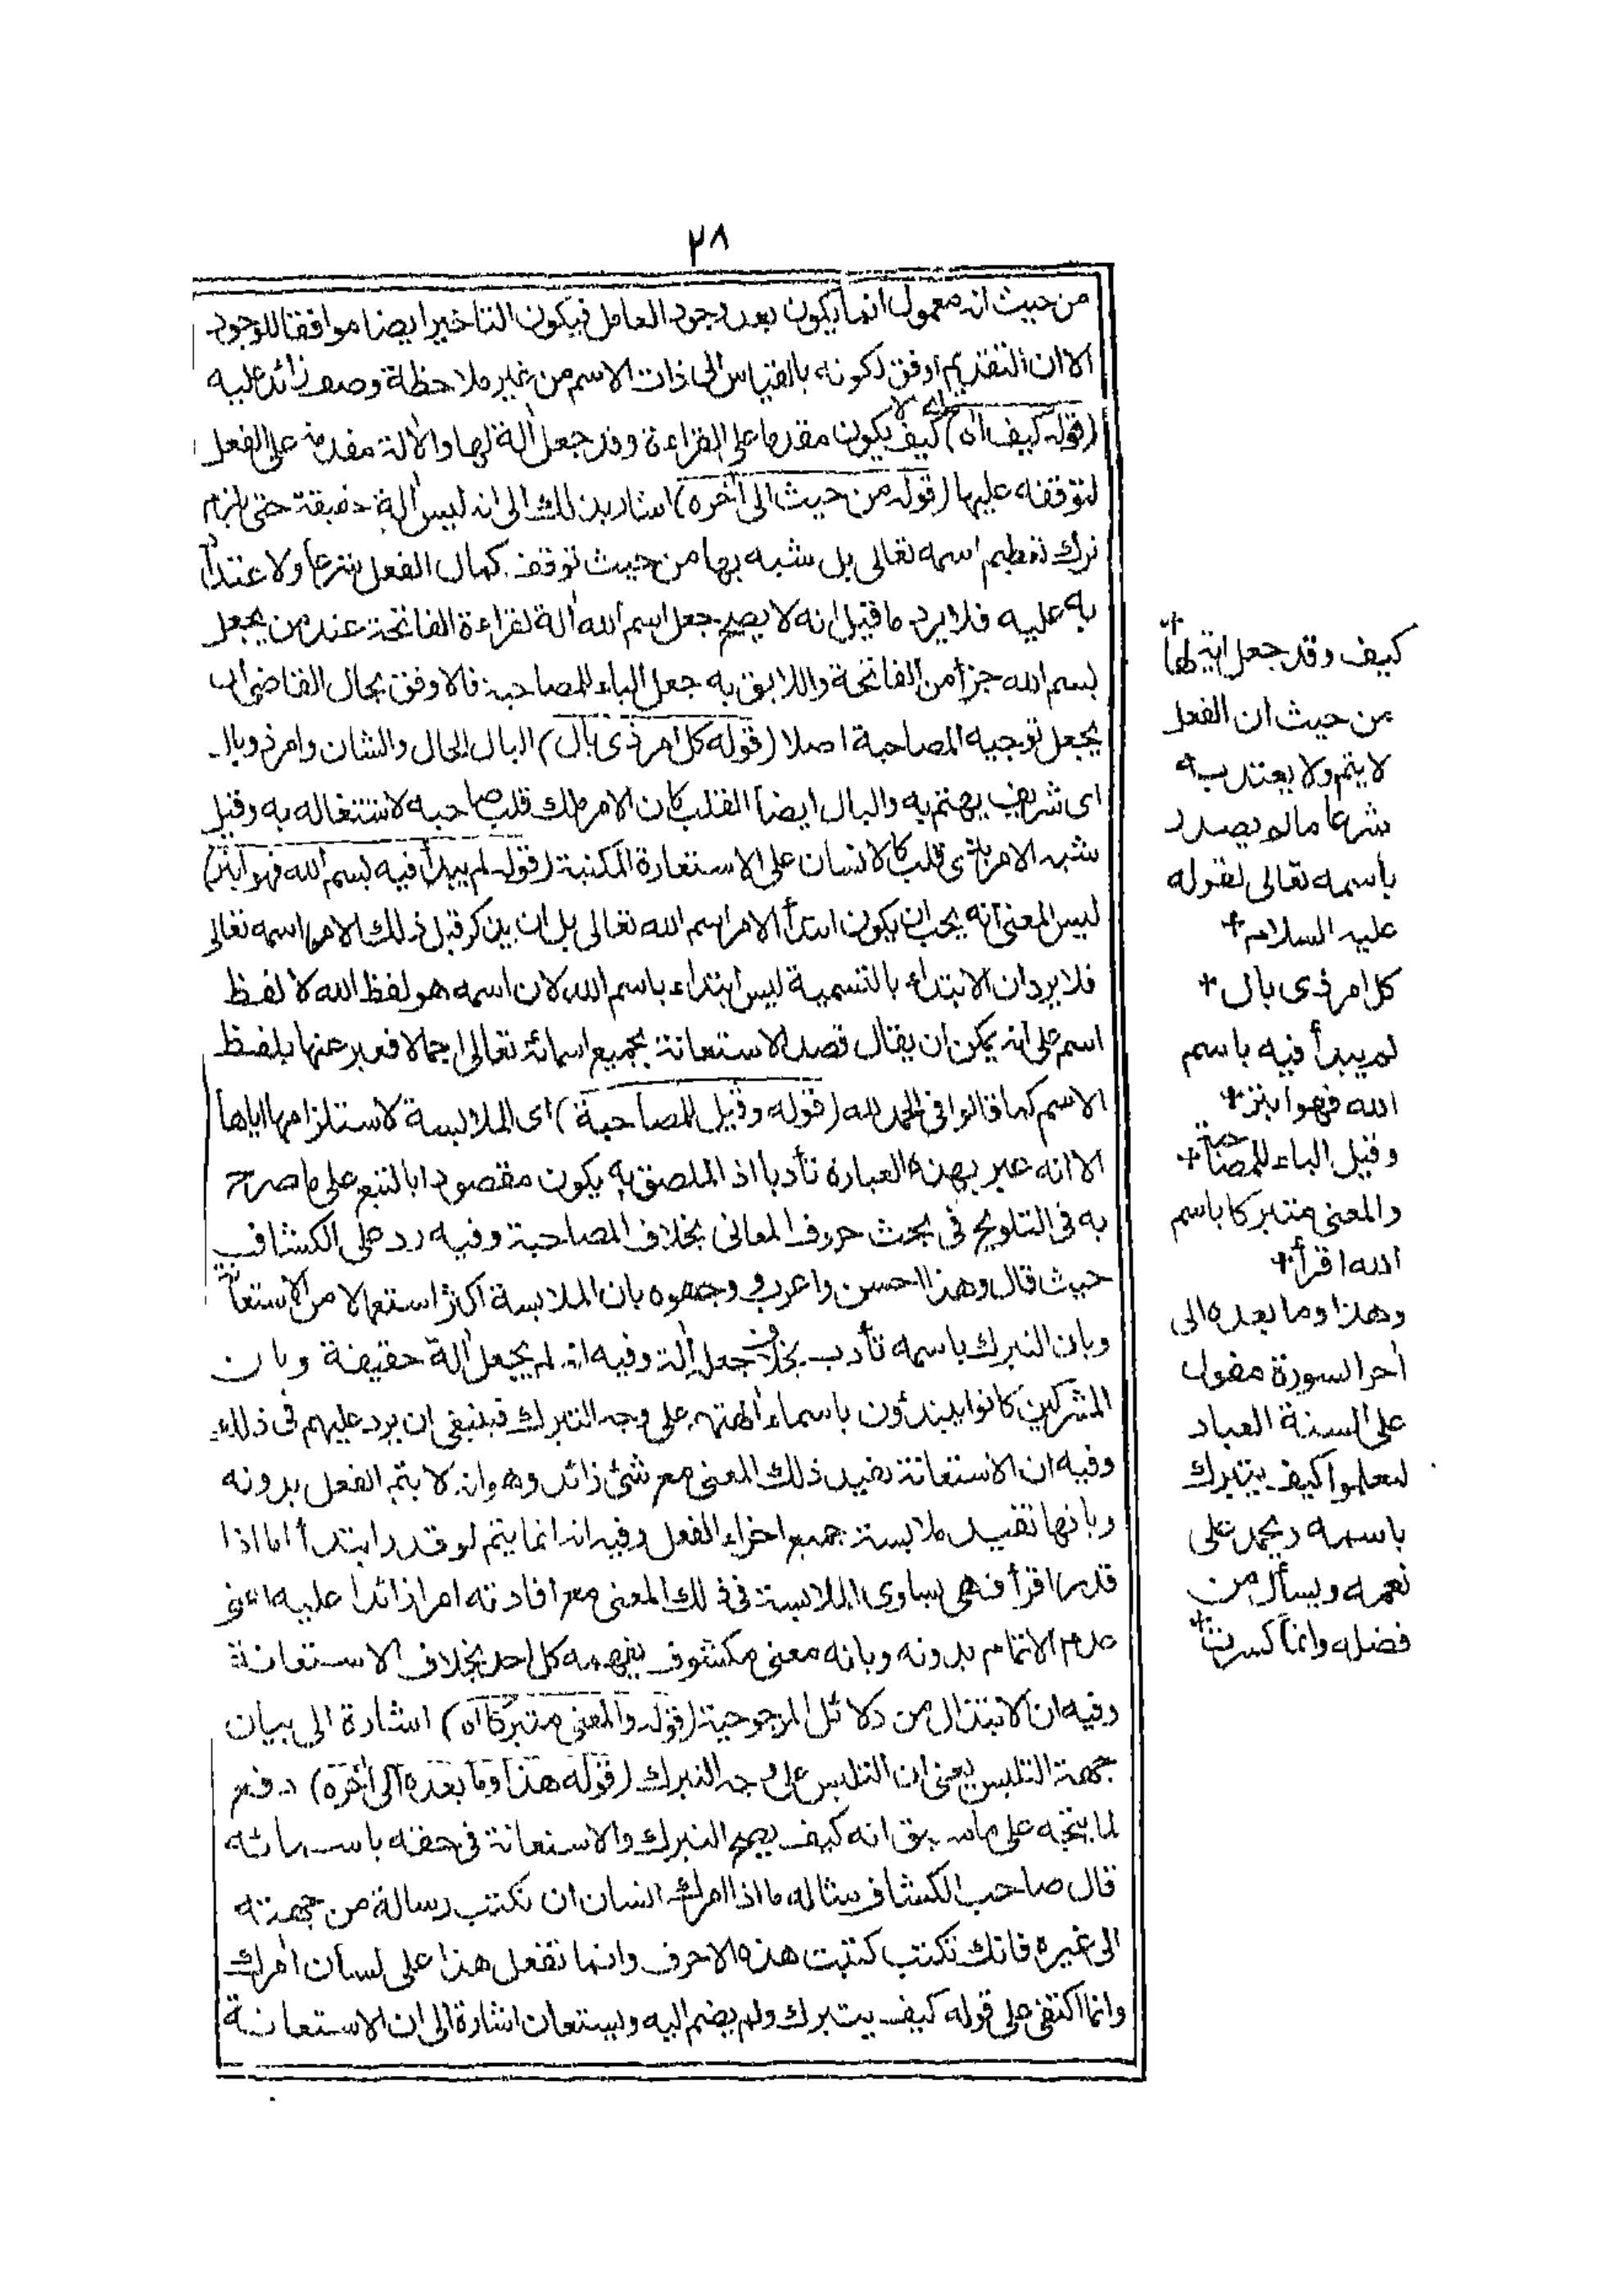 ٢٨
من حيث انه معمول انما يكون بعد وجود العامل فيكون التاخير ايضا موافقا للوجود
الا ان التقديم اوفق لكونه بالقياس الى ذات الاسم من غير ملاحظة وصف زائد عليه
(قوله كيف اه) كيف لا يكون مقدما على القراءة وقد جعل ألة لها والألة مقدمة على الفعل
لتوقفه عليها (قوله من حيث الى أخره) اشار بذلك الى انه ليس ألة حقيقة حتى يلزم
ترك تعظيم اسمه تعالى بل شبه بها من حيث توقف كمال الفعل شرعا ولاعتدا
به عليه فلا يرد ما قيل انه لا يصح جعل اسم الله ألة لقراءة الفاتحة عند من يجعل
بسم الله جزأ من الفاتحة واللايق به جعل الباء للمصاحبة فالاوفق بحال القاضى ان
يجعل توجيه المصاحبة اصلا (قوله كل امر ذى بال) البال الحال والشان وامر ذو بال
اى شريف يهتم به والبال ايضا القلب كان الامر ملك قلب صاحبه لاشتغاله به وقيل
شبه الامر بذى قلب كالانسان على الاستعارة المكنية (قوله لم يبدأ فيه بسم الله فهو ابتر)
ليس المعنى انه يجب ان يكون ابتدأ الامر اسم الله تعالى بل ان يذكر قبل ذلك الامر اسمه تعالى
فلا يرد ان الابتداء بالتسمية ليس ابتداء باسم الله لان اسمه هو لفظ الله لا لفظ
اسم على انه يمكن ان يقال قصد الاستعانة بجميع اسمائه تعالى اجمالا فعبر عنها بلفظ
الاسم كما قالوا فى الحمد لله (قوله وقيل للمصاحبة) اى الملابسة لاستلزامها اياها
الا انه عبر بهذه العبارة تأدبا اذ الملصق به يكون مقصودا بالتبع على ما صرح
به فى التلويح فى بحث حروف المعانى بخلاف المصاحبة وفيه رد على الكشاف
حيث قال وهذا احسن واعرب ووجهوه بان الملابسة اكثر استعمالا من الاستعانة
وبان التبرك باسمه تأدب بخلاف جعله ألة وفيه انه لم يجعل ألة حقيقة وبان
المشركين كانوا يبتدؤن باسماء ألهتهم على وجه التبرك فينبغى ان يرد عليهم فى ذلك
وفيه ان الاستعانة تفيد ذلك المعنى مع شئ زائد وهو انه لا يتم الفعل بدونه
وبانها تفيد ملابسة جميع اجزاء الفعل وفيه انه انما يتم لو قدر ابتدأ اما اذا
قدر اقرأ فهى يساوى الملابسة فى ذلك المعنى مع افادته امرا زائدا عليه اعنى
عدم الاتمام بدونه وبانه معنى مكشوف يفهمه كل احد بخلاف الاستعانة
وفيه ان الابتذال من دلائل المرجوحية (قوله والمعنى متبركا اه) اشارة الى بيان
جهة التلبس يعنى ان التلبس على وجه التبرك (قوله هذا وما بعده الى أخره) دفع
لما يتجه على ما سبق انه كيف يصح التبرك والاستعانة فى حقه باسمائه
قال صاحب الكشاف مثاله ما اذا امرك انسان ان تكتب رسالة من جهته
الى غيره فانك تكتب كتبت هذه الاحرف وانما تفعل هذا على لسان أمرك
وانما اكتفى على قوله كيف يتبرك ولم يضم اليه ويستعان اشارة الى ان الاستعانة
كيف وقد جعل الة لها
من حيث ان الفعل
لا يتم ولا يعتد به
شرعا مالم يصدر
باسمه تعالى لقوله
عليه السلام
كل امر ذى بال
لم يبدأ فيه باسم
الله فهو ابتر
وقيل الباء للمصاحبة
والمعنى متبركا باسم
الله اقرأ
وهذا وما بعده الى
أخر السورة مقول
على السنة العباد
ليعلموا كيف يتبرك
باسمه ويحمد على
نعمه ويسأل من
فضله وانما كسرت